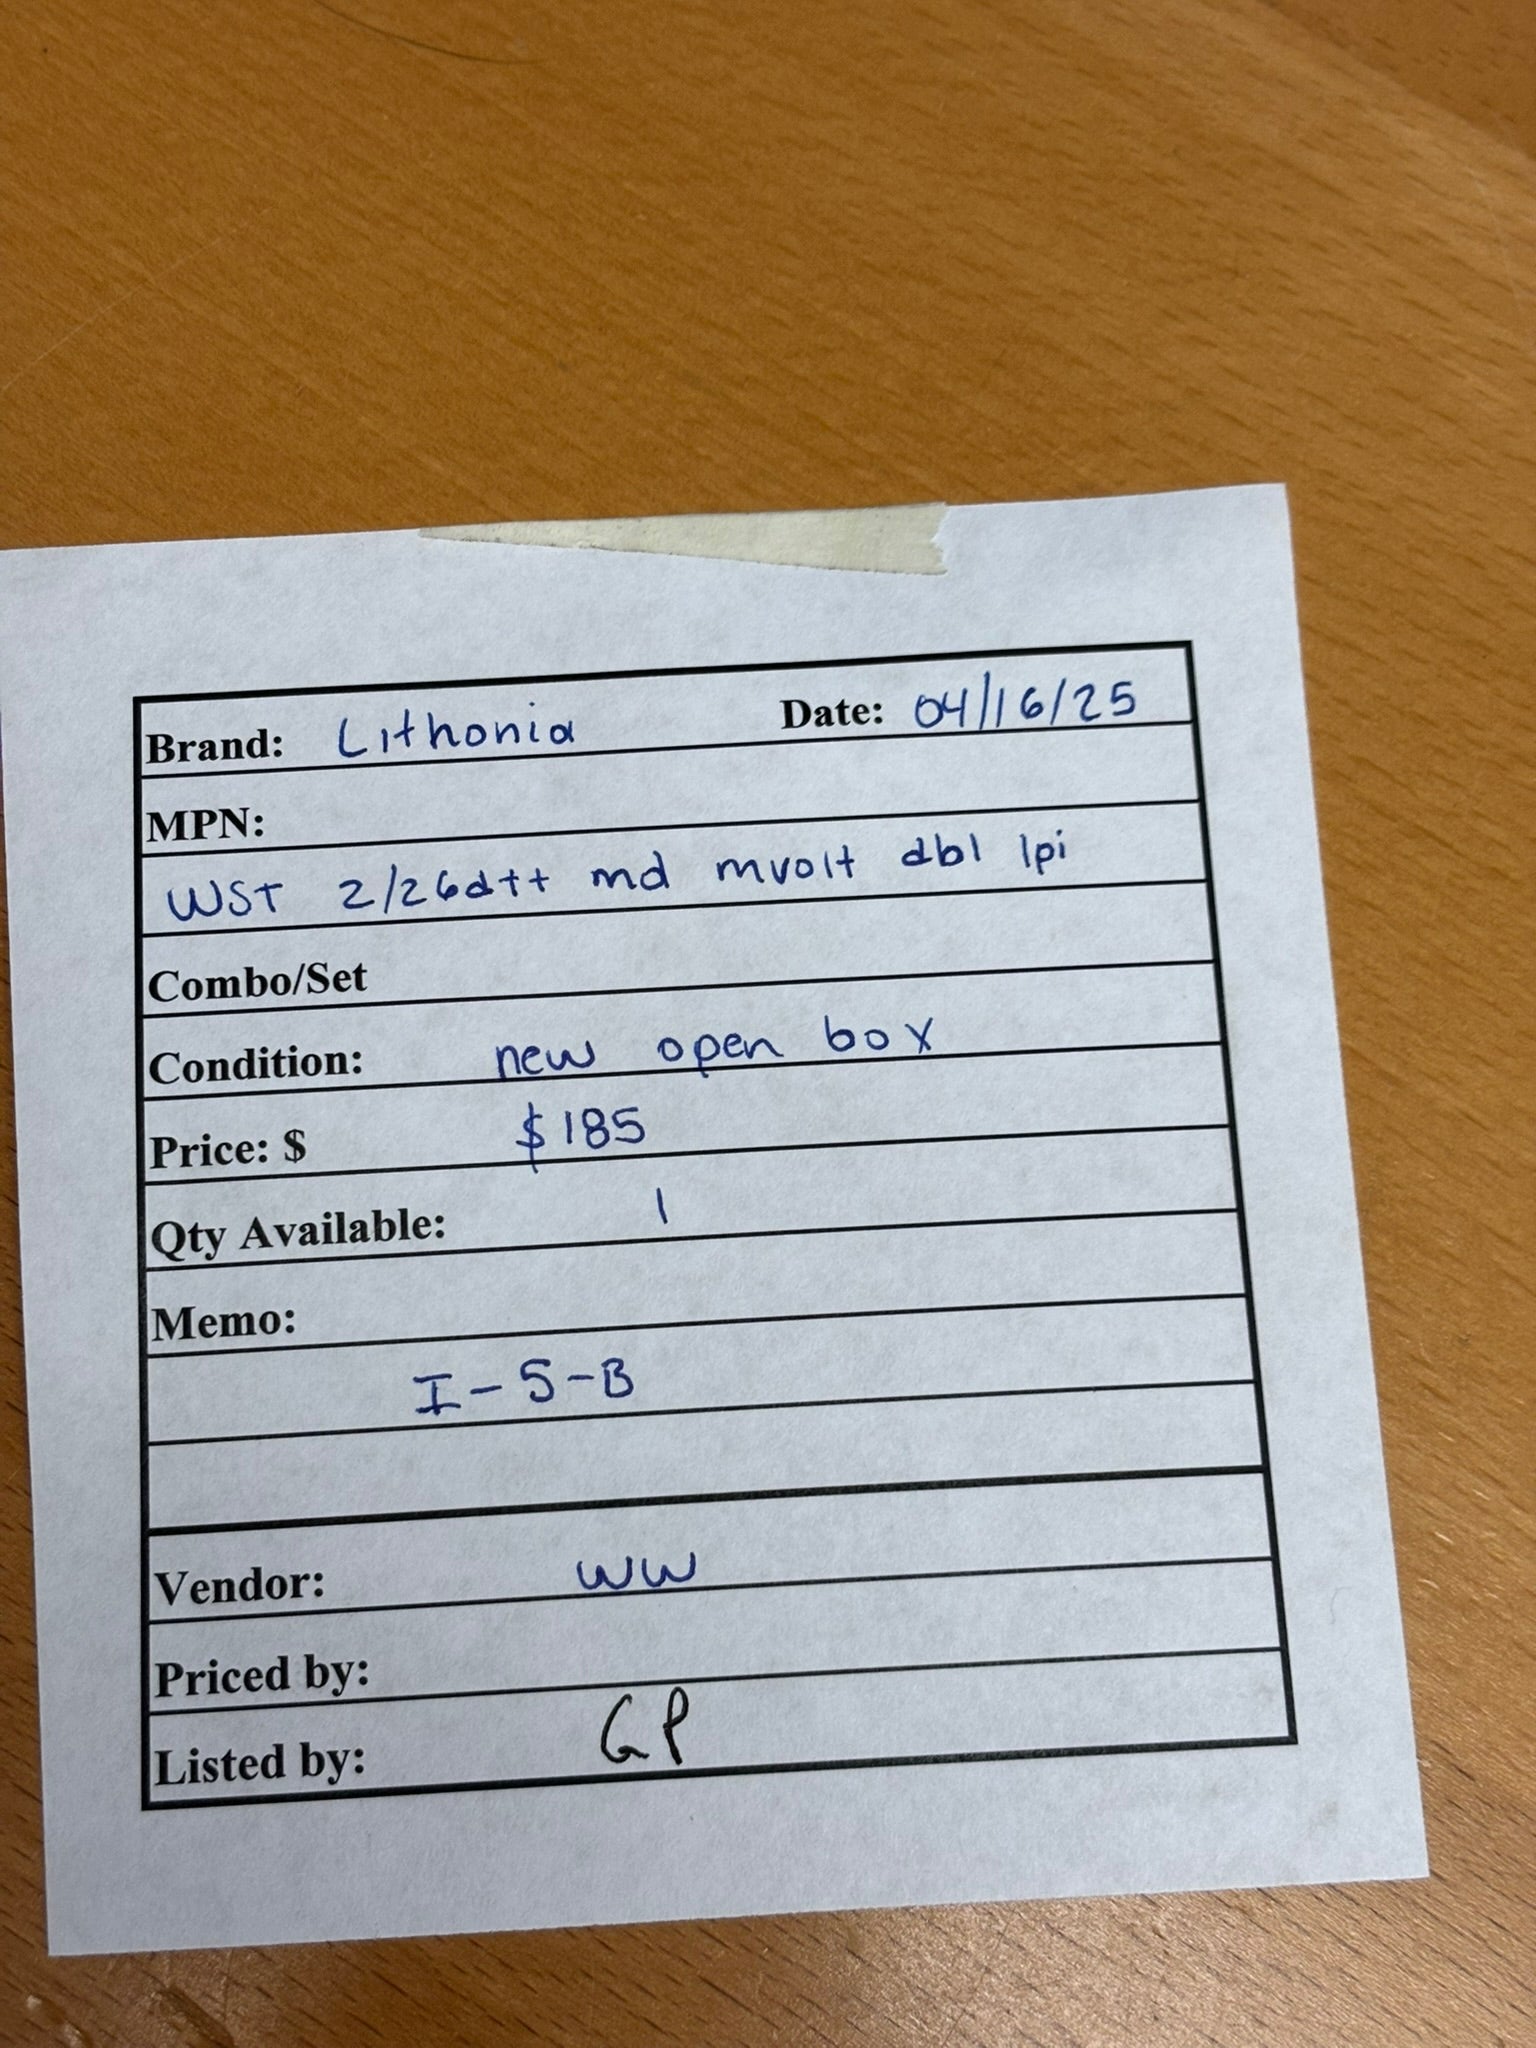 Brand: Lithonia Date: 04/16/25
MPN:
WST 2/26dtt md mvolt dbl lpi
Combo/Set
Condition: new open box
Price: $ $185
Qty Available: 1
Memo:
I-5-B
Vendor: WW
Priced by:
Listed by: GP